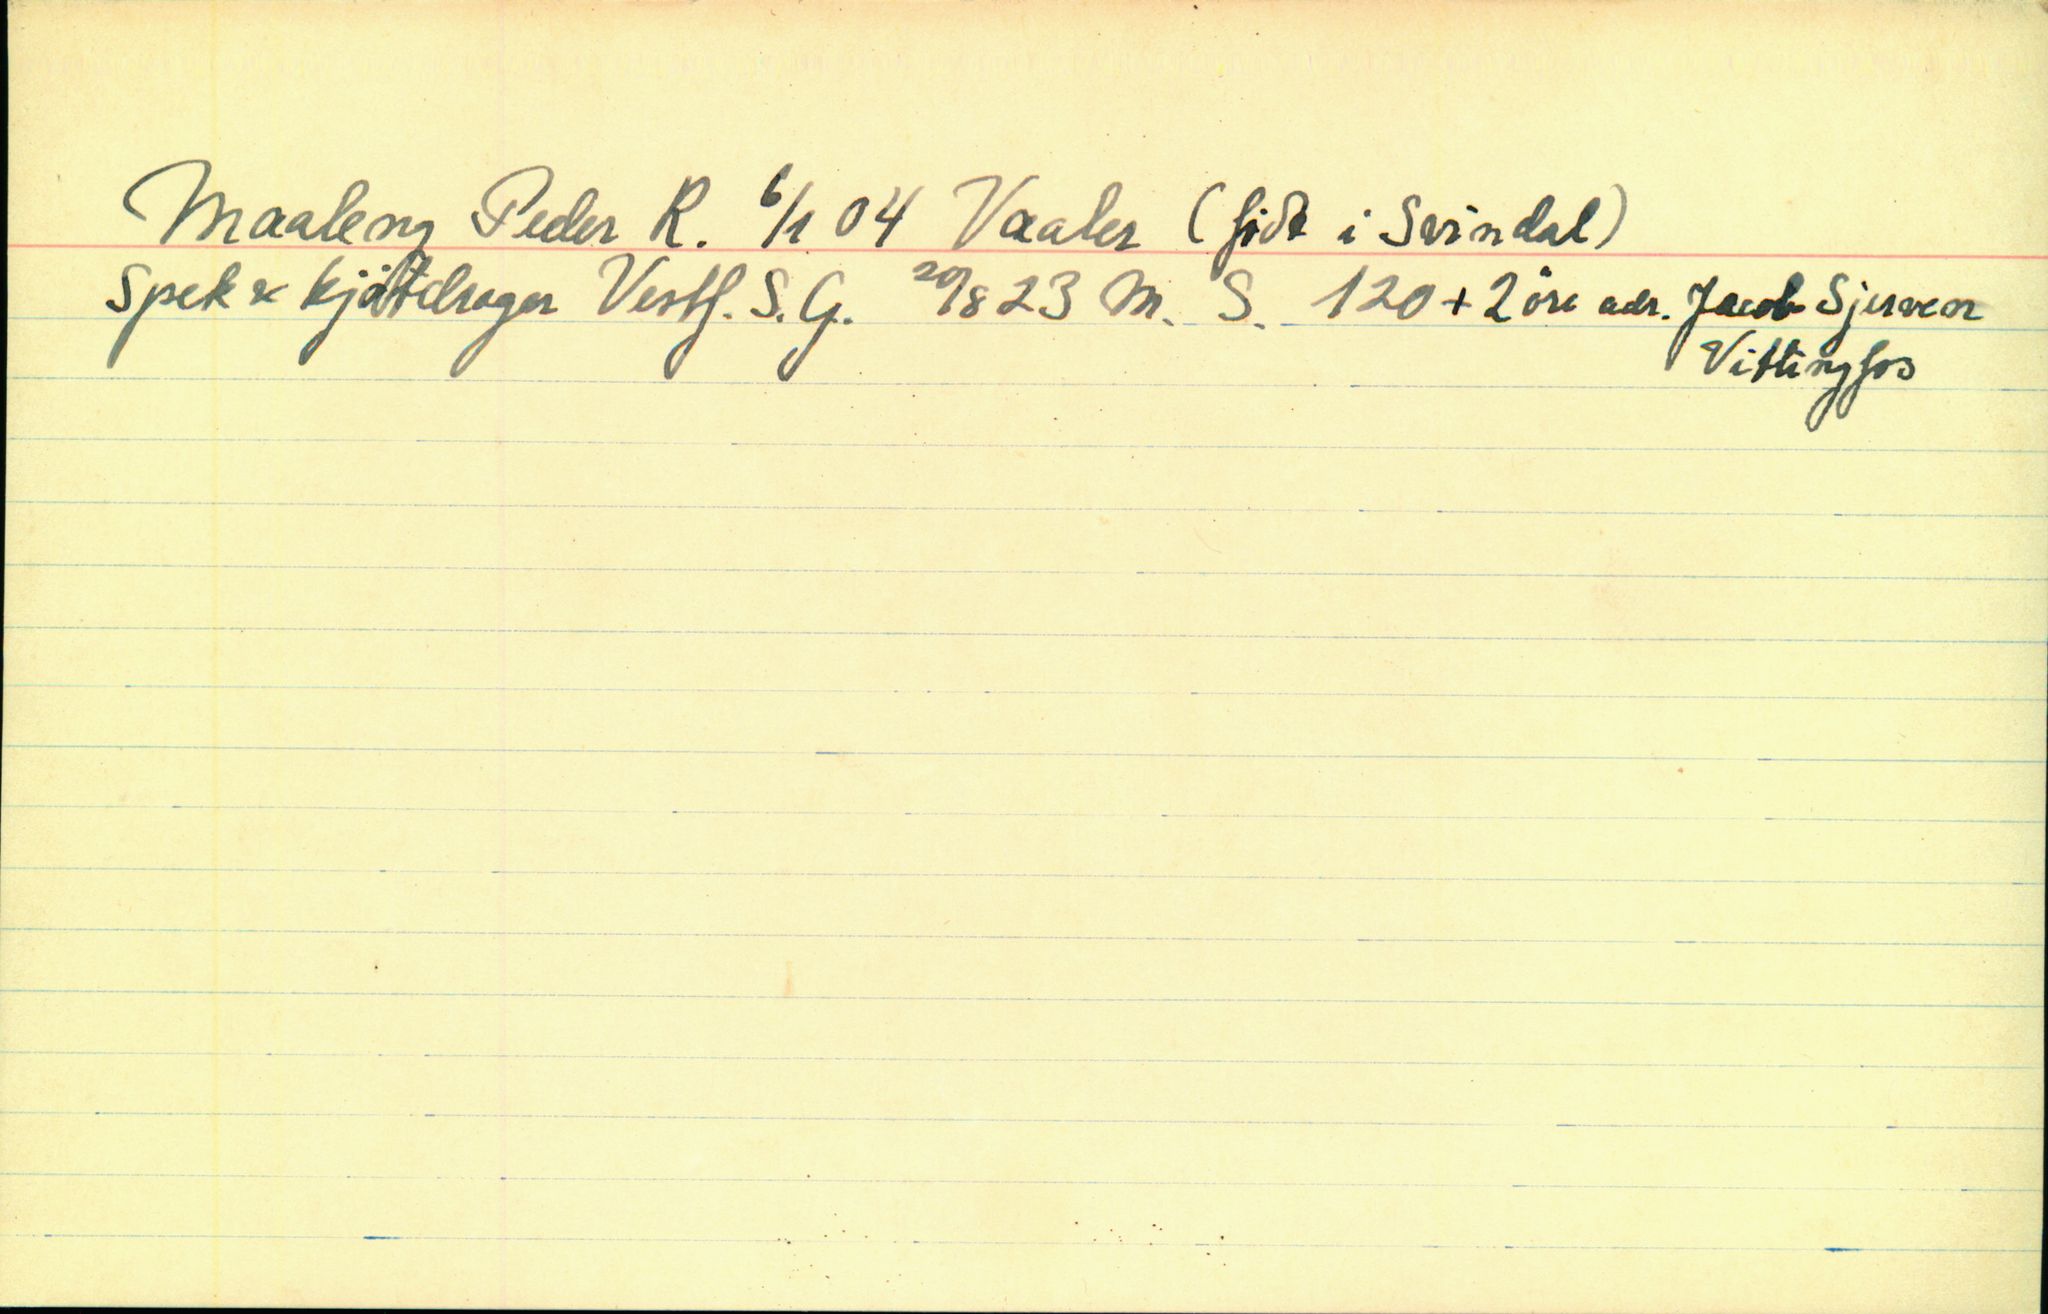 Maaleng Peder R. 6/1 04 Vaaler (födt i Svindal)
Spek & kjöttdrager Vestf. S. G. 20/8 23 M. S. 120 + 2 öre adr. Jacob Sjerven
Vittingfos